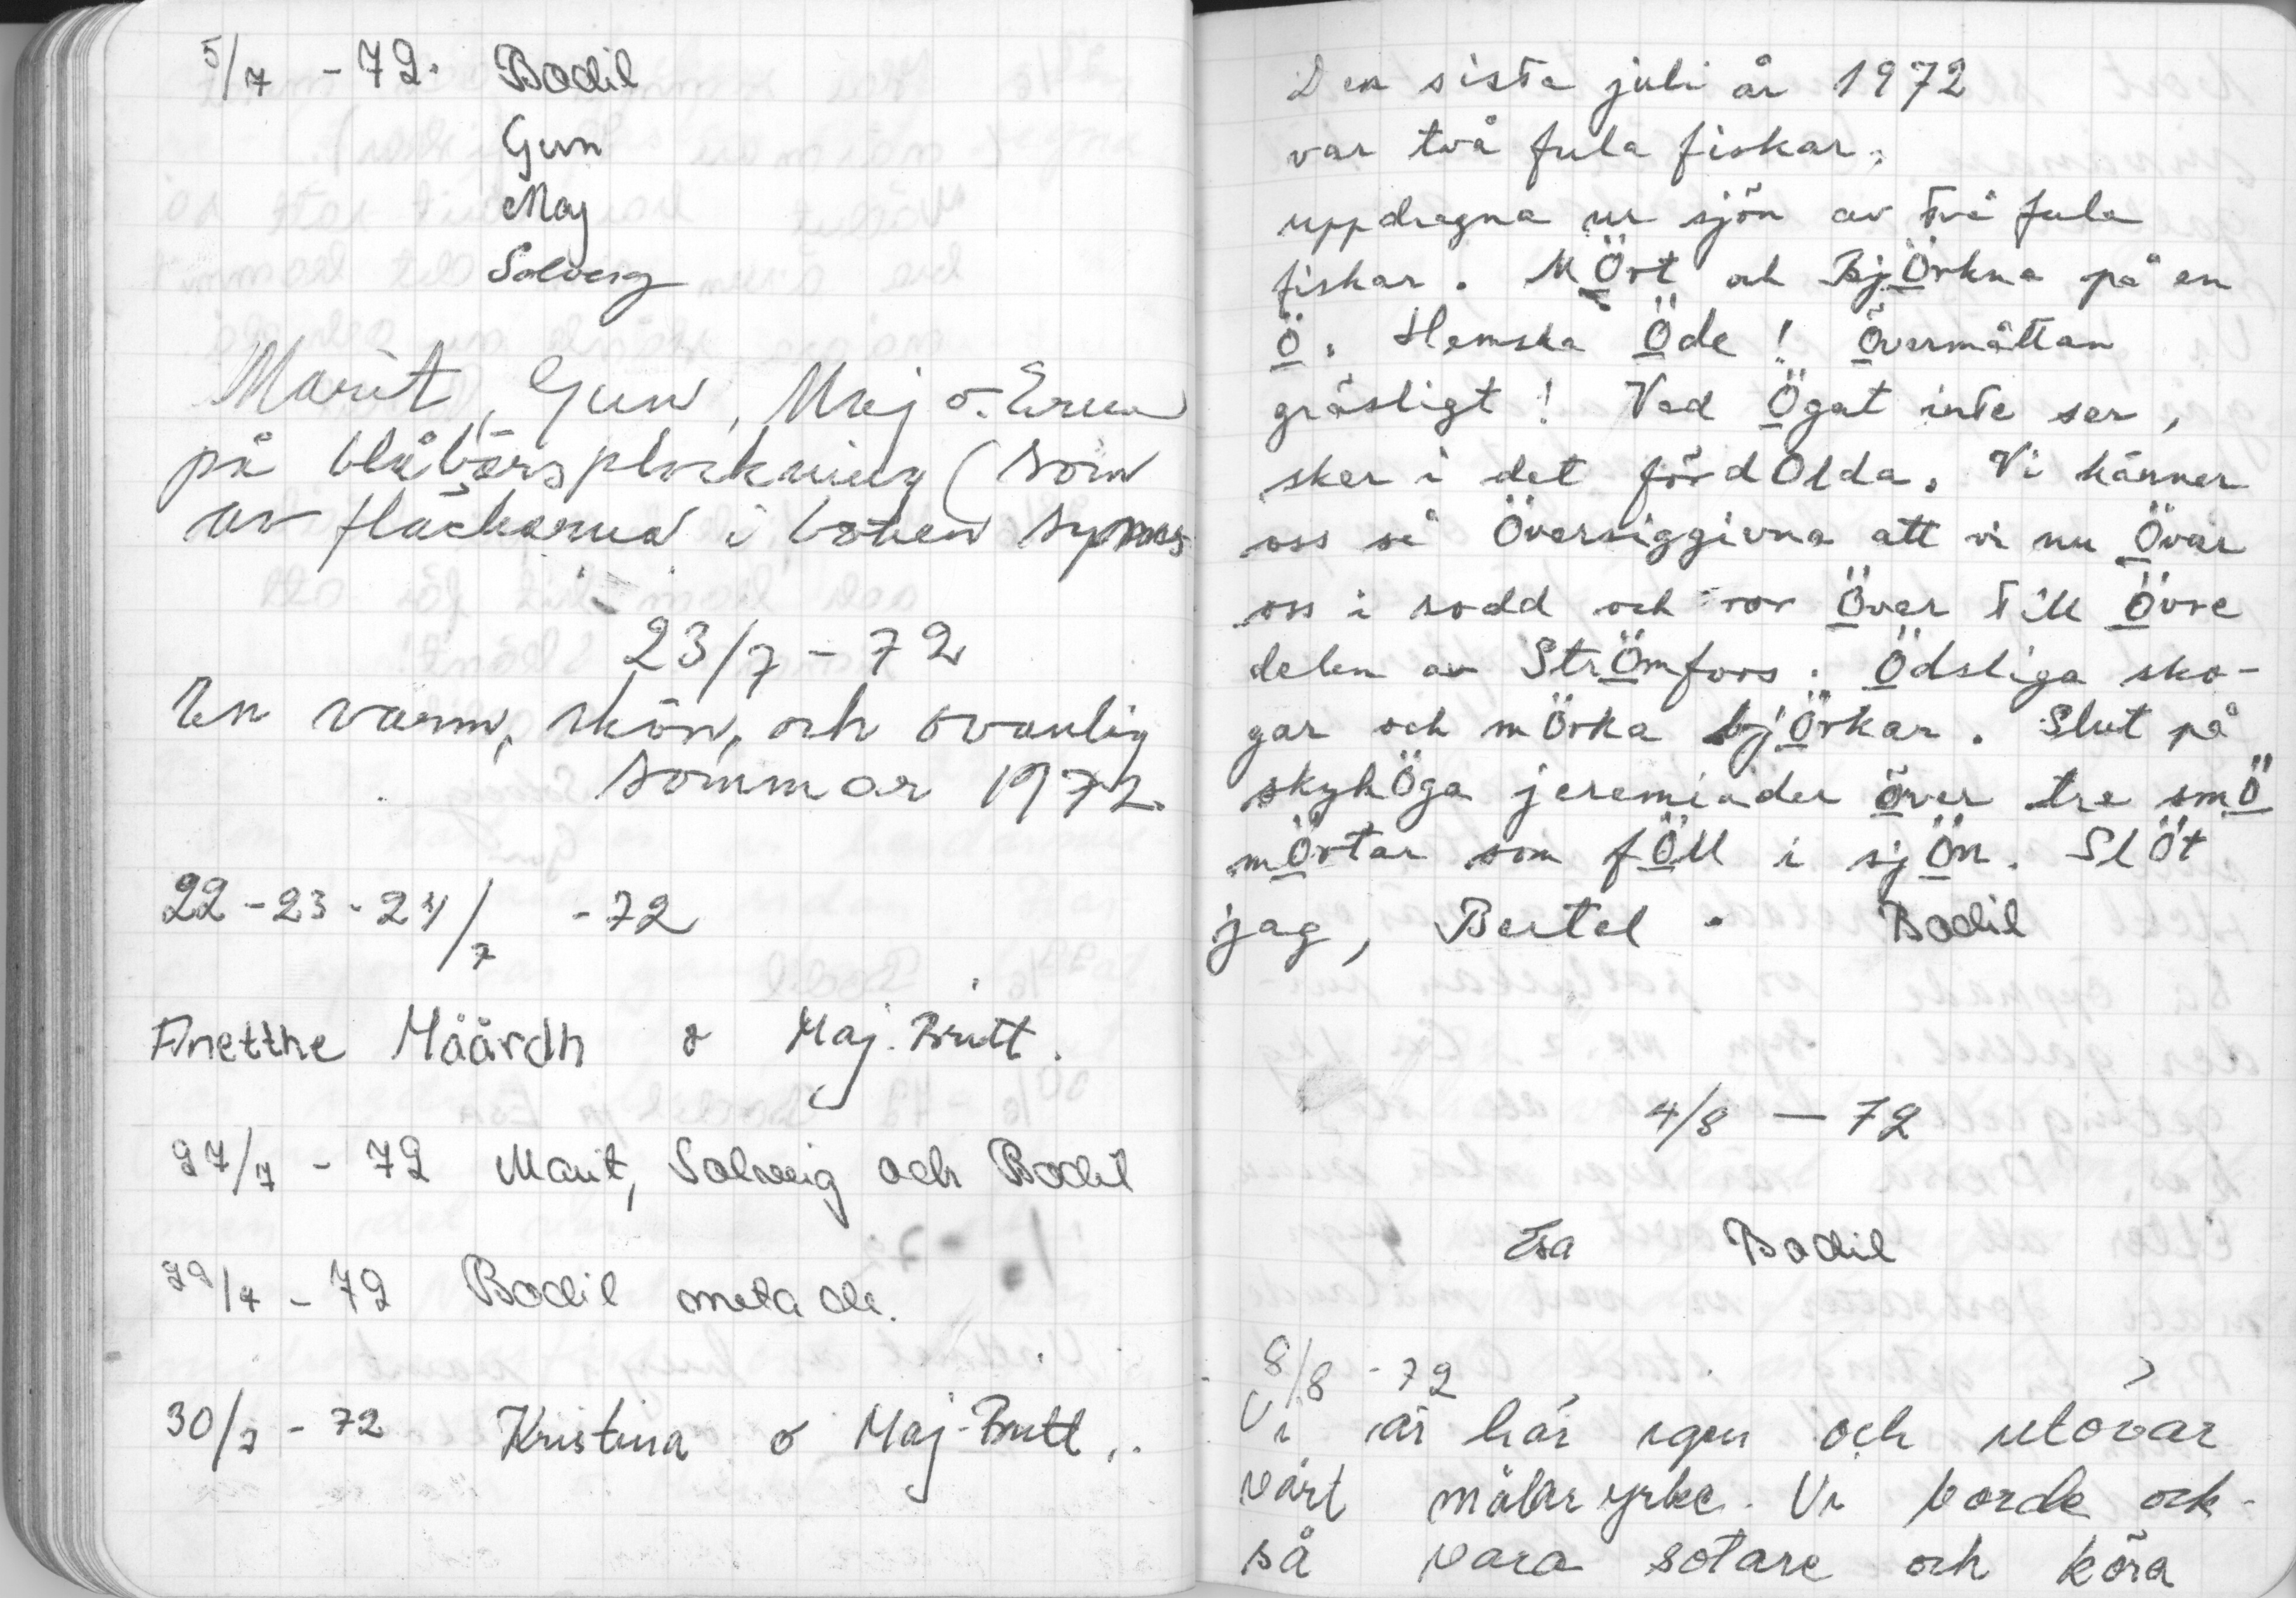 5/7 - 72. Bodil
Gun
Maj
Solveig
Marit, Gun, Maj o. Erica
på blåbärsplockning (som
av fläckarna i boken synes
23/7 - 72
En varm, skön, och ovanlig
sommar 1972.
22 - 23 - 24/7 - 72
Anetthe Måårdh & Maj-Britt.
27/7 - 72 Marit, Solveig och Bodil
29/7 - 72 Bodil metade.
30/7 - 72 Kristina o Maj-Britt..
Den sista juli år 1972
var två fula fiskar,
uppdragna ur sjön av två fula
fiskar. MÖrt och BjÖrkna på en
Ö. Hemska Öde! Övermåttan
gräsligt! Vad Ögat inte ser,
sker i det fördOlda. Vi känner
oss så Översiggivna att vi nu Övar
oss i rodd och ror Över till Övre
delen av StrÖmfors. Ödsliga sko-
gar och mÖrka bjÖrkar. Slut på
skyhÖga jeremiader över tre smÖ
mÖrtar som fÖll i sjÖn. SlÖt
jag, Bertel. Bodil
4/8 — 72
Esa Bodil
8/8 - 72
Vi är här igen och utövar
vårt målaryrke. Vi borde ock-
så vara sotare och köra